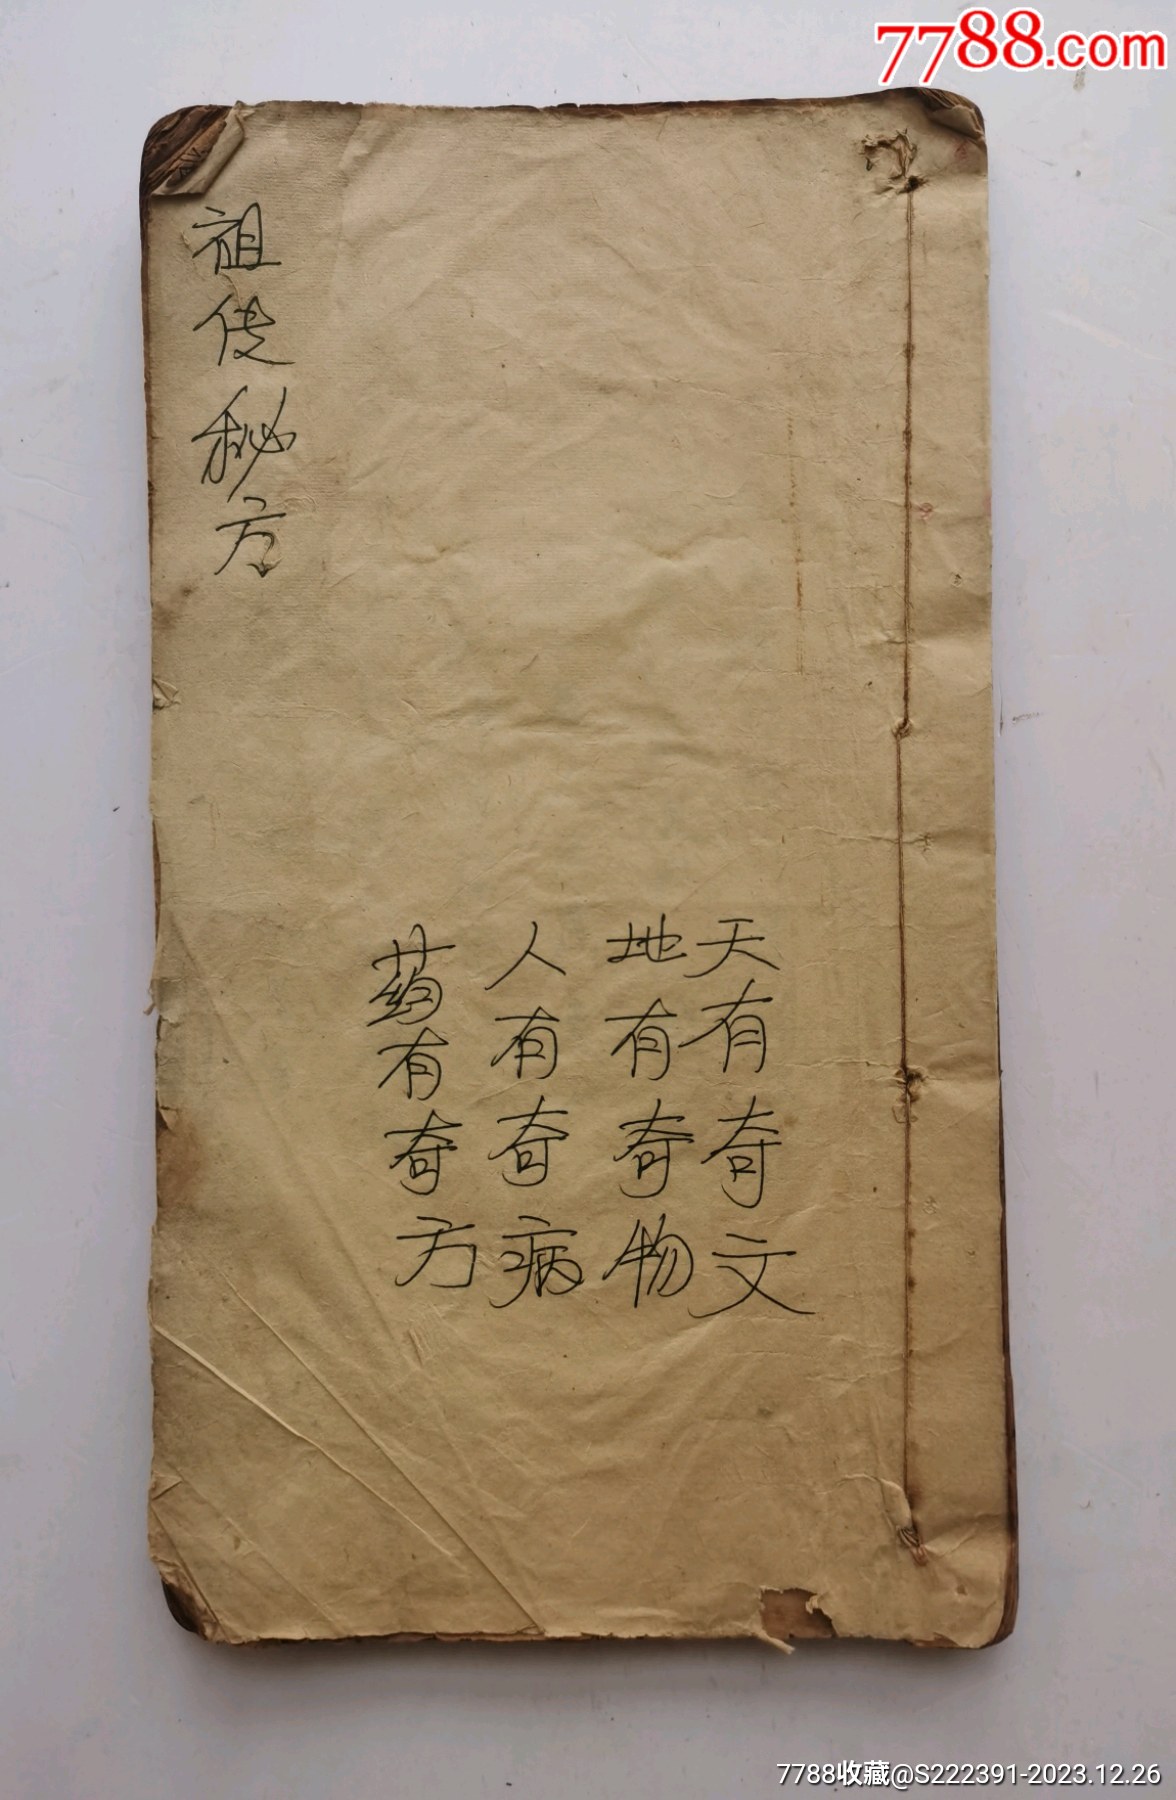 7788.com
祖传秘方
天有奇文
地有奇物
人有奇病
药有奇方
7788收藏@S222391-2023.12.26